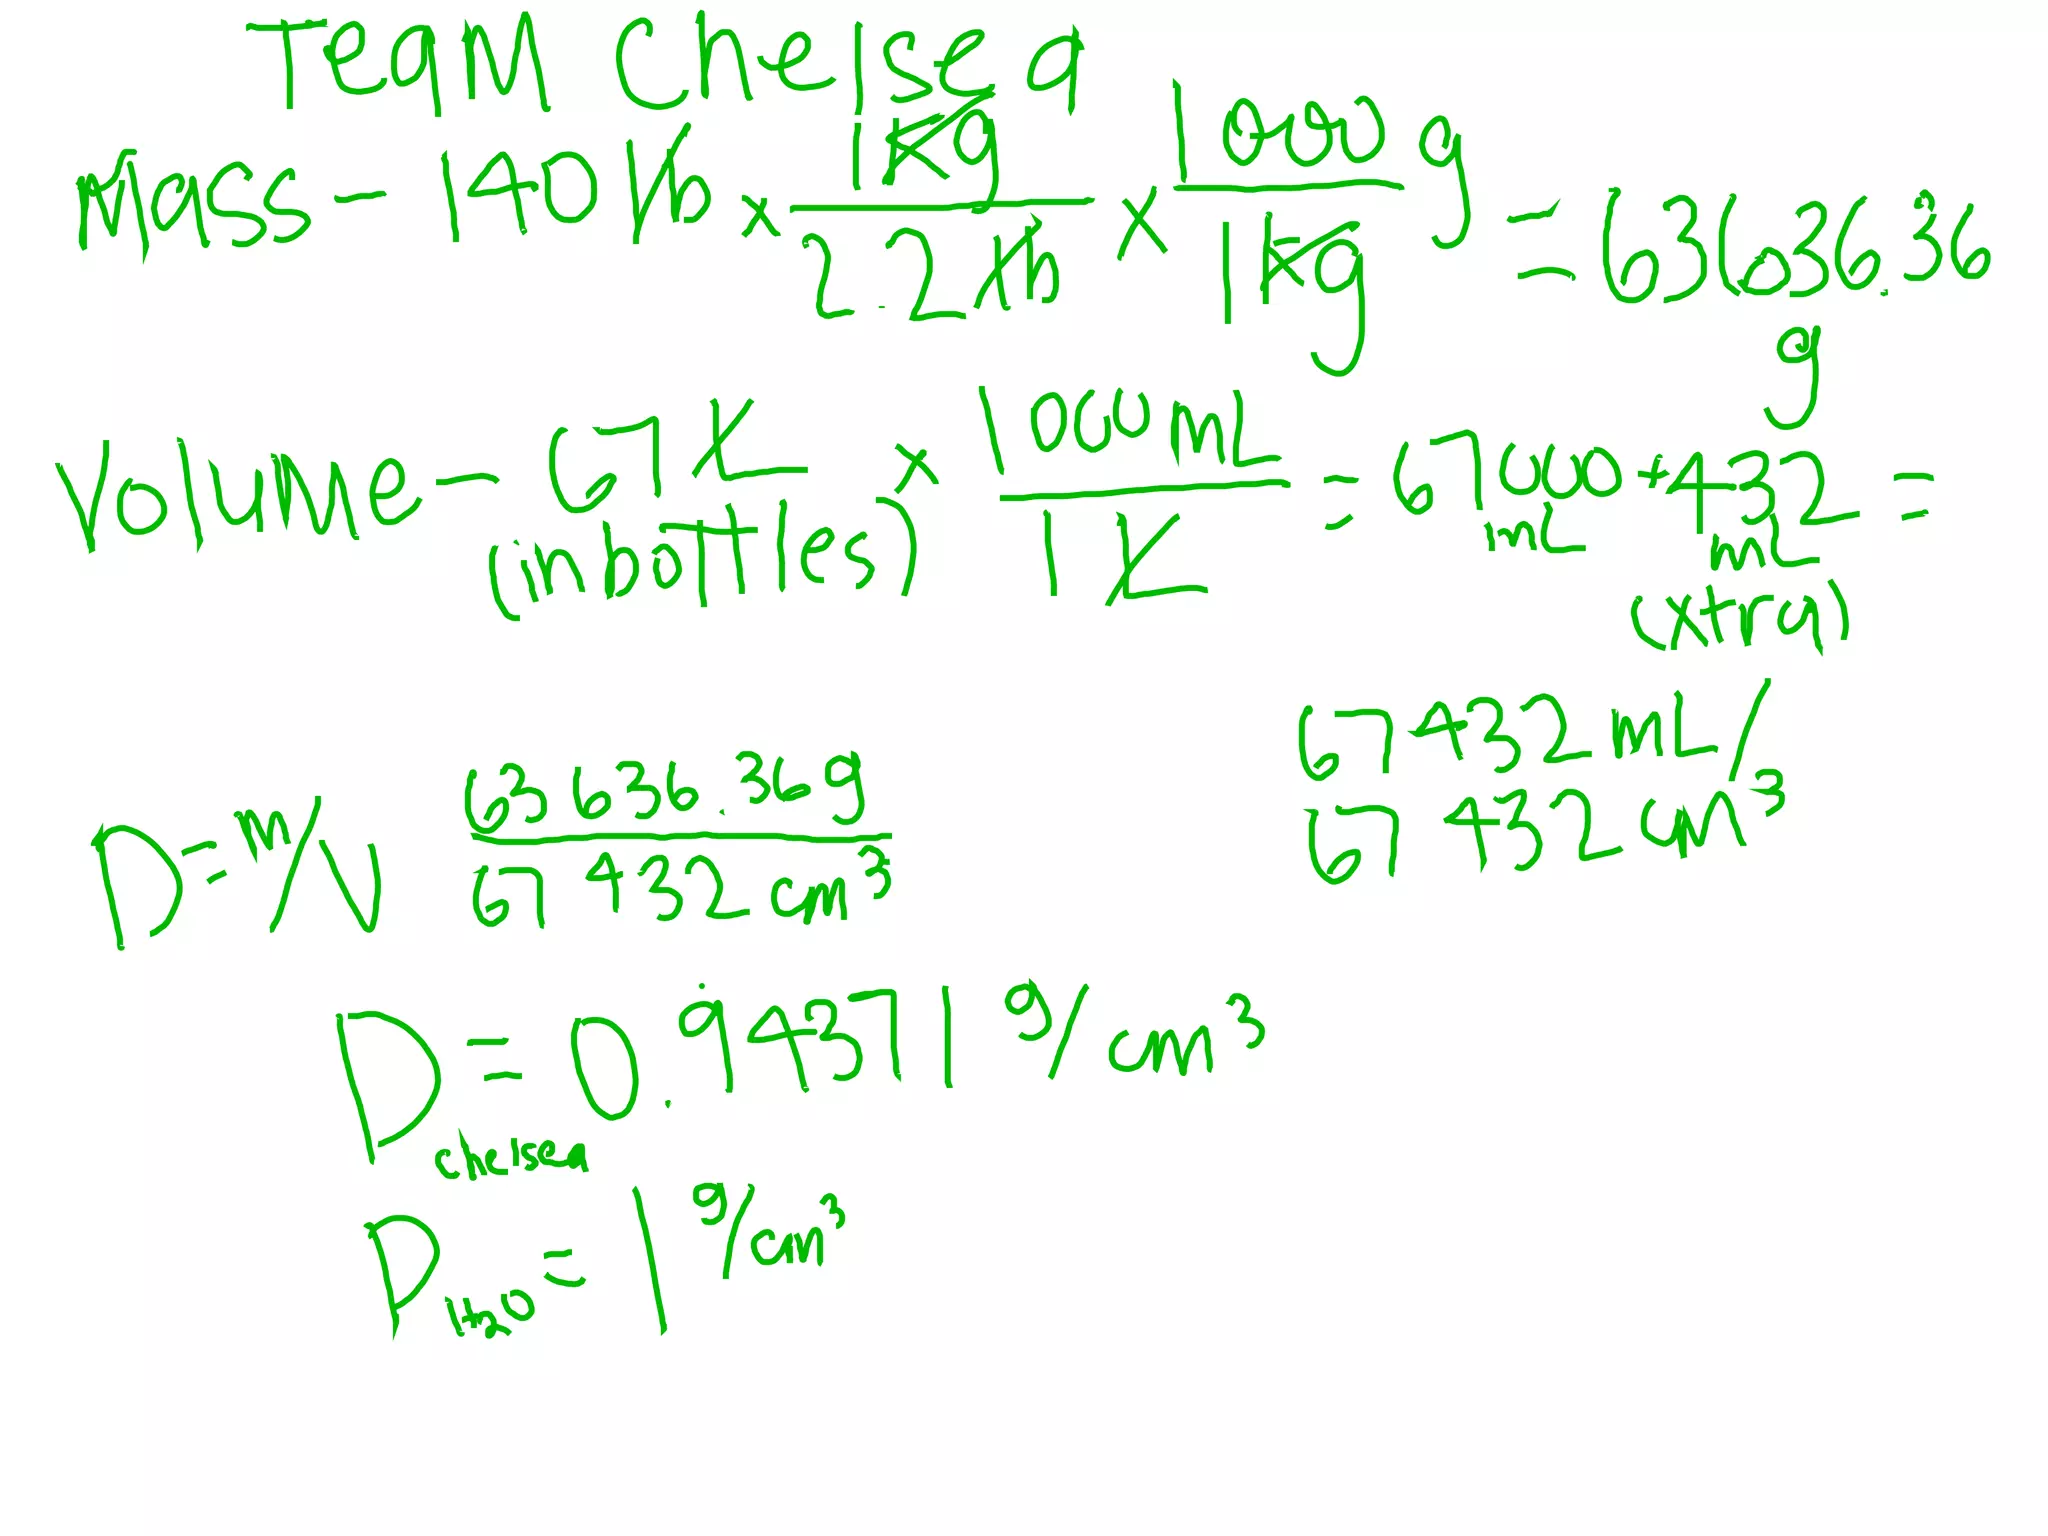 Team Chelsea
Mass - 140 lb × 1kg/2.2 lb × 1000 g/1kg = 63636.36 g
Volume - 67 L (in bottles) × 1000 mL/1 L = 67000 mL + 432 mL (extra) =
67432 mL/
67432 cm³
D = m/V 63636.36g/67432 cm³
D chelsea = 0.94371 g/cm³
D H2O = 1 g/cm³